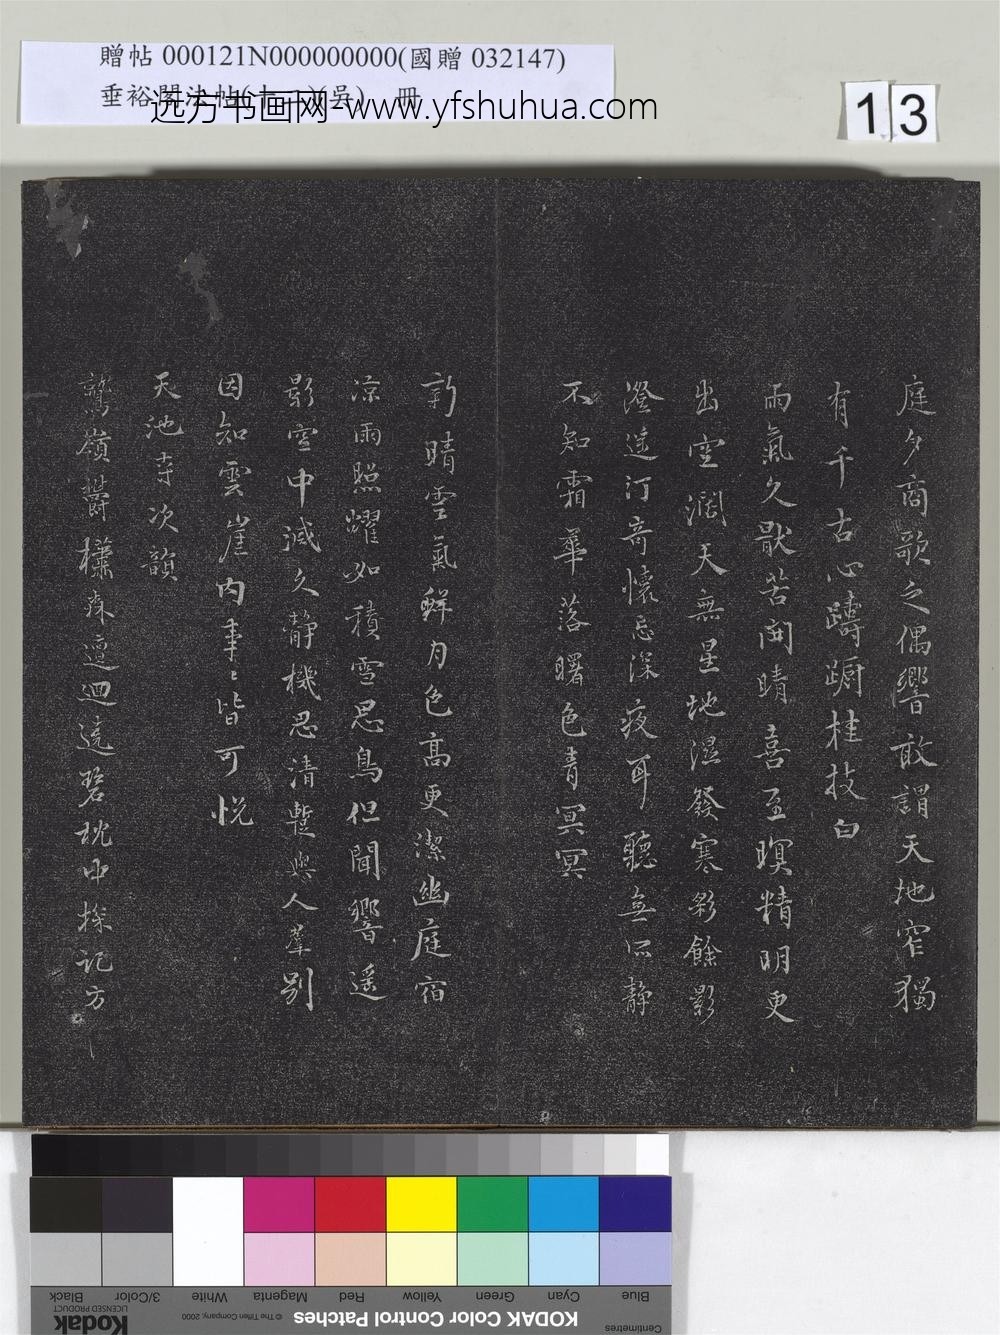 贈帖 000121N000000000(國贈 032147)
垂裕閣法帖(十一)(吳) 冊
远方书画网-www.yfshuhua.com
13
庭夕商歌之偶響敢謂天地窄獨
有千古心躊躕桂技白
雨氣久厭苦開晴喜至暝精明更
出空濶天無星地濕發寒彩餘影
澄遠汀奇懷忘深夜耳聽無所靜
不知霜華落曙色青冥冥
新晴雲氣鮮月色高更潔幽庭宿
凉雨照耀如積雪思鳥但聞響遥
影空中滅久靜機思清暫與人羣別
因知雲崖内事〻皆可悦
天池寺次韻
鷲嶺欝檬森邅迴遶碧枕中探記方
Blue Cyan Green Yellow Red Magenta White 3/Color Black
Centimetres KODAK Color Control Patches © The Tiffen Company, 2000 Kodak
LICENSED PRODUCT